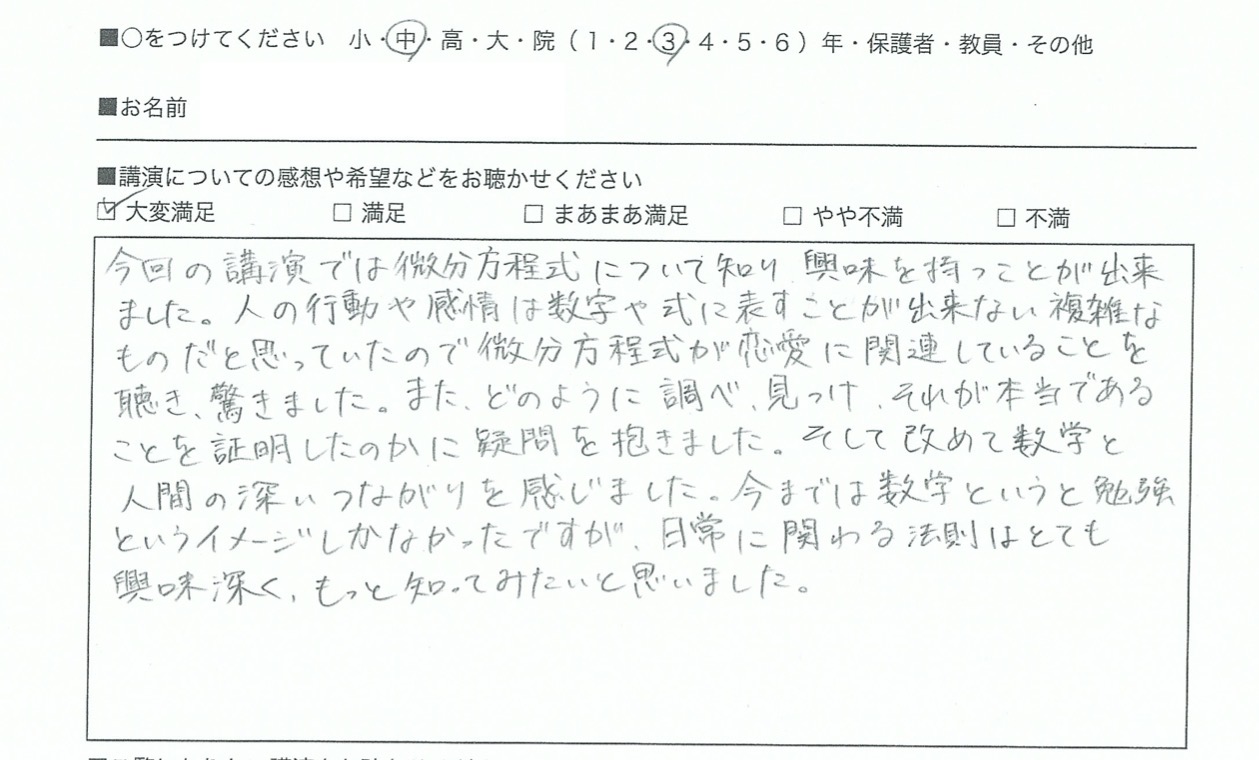 ■○をつけてください　小・中・高・大・院（1・2・3・4・5・6）年・保護者・教員・その他
■お名前
■講演についての感想や希望などをお聴かせください
☑ 大変満足　□ 満足　□ まあまあ満足　□ やや不満　□ 不満
今回の講演では微分方程式について知り、興味を持つことが出来
ました。人の行動や感情は数字や式に表すことが出来ない複雑な
ものだと思っていたので微分方程式が恋愛に関連していることを
聴き、驚きました。また、どのように調べ、見つけ、それが本当である
ことを証明したのかに疑問を抱きました。そして改めて数学と
人間の深いつながりを感じました。今までは数学というと勉強
というイメージしかなかったですが、日常に関わる法則はとても
興味深く、もっと知ってみたいと思いました。